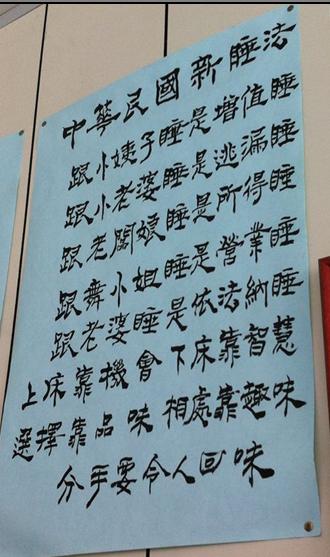 中華民國新睡法
跟小姨子睡是增值睡
跟小老婆睡是逃漏睡
跟老闆娘睡是所得睡
跟舞小姐睡是營業睡
跟老婆睡是依法納睡
上床靠機會下床靠智慧
選擇靠品味相處靠趣味
分手要令人回味